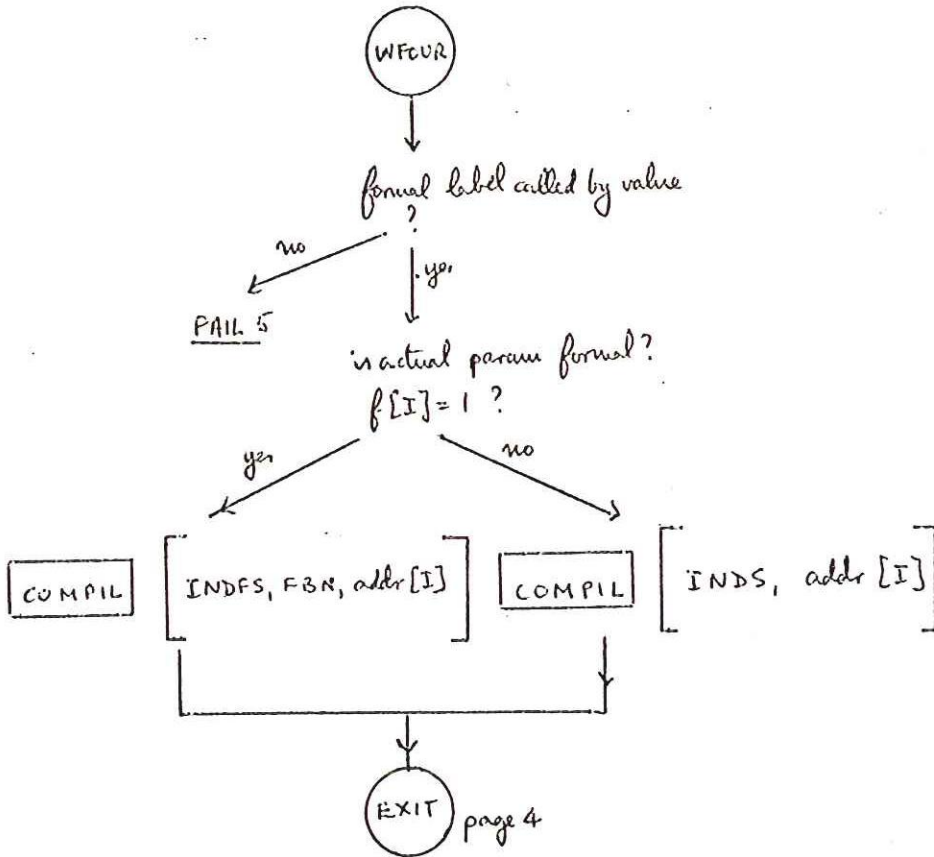 WFOUR
formal label called by value
?
no
yes
FAIL 5
is actual param formal?
f[I] = 1 ?
yes
no
COMPIL
[INDFS, FBN, addr [I]]
COMPIL
[INDS, addr [I]]
EXIT
page 4